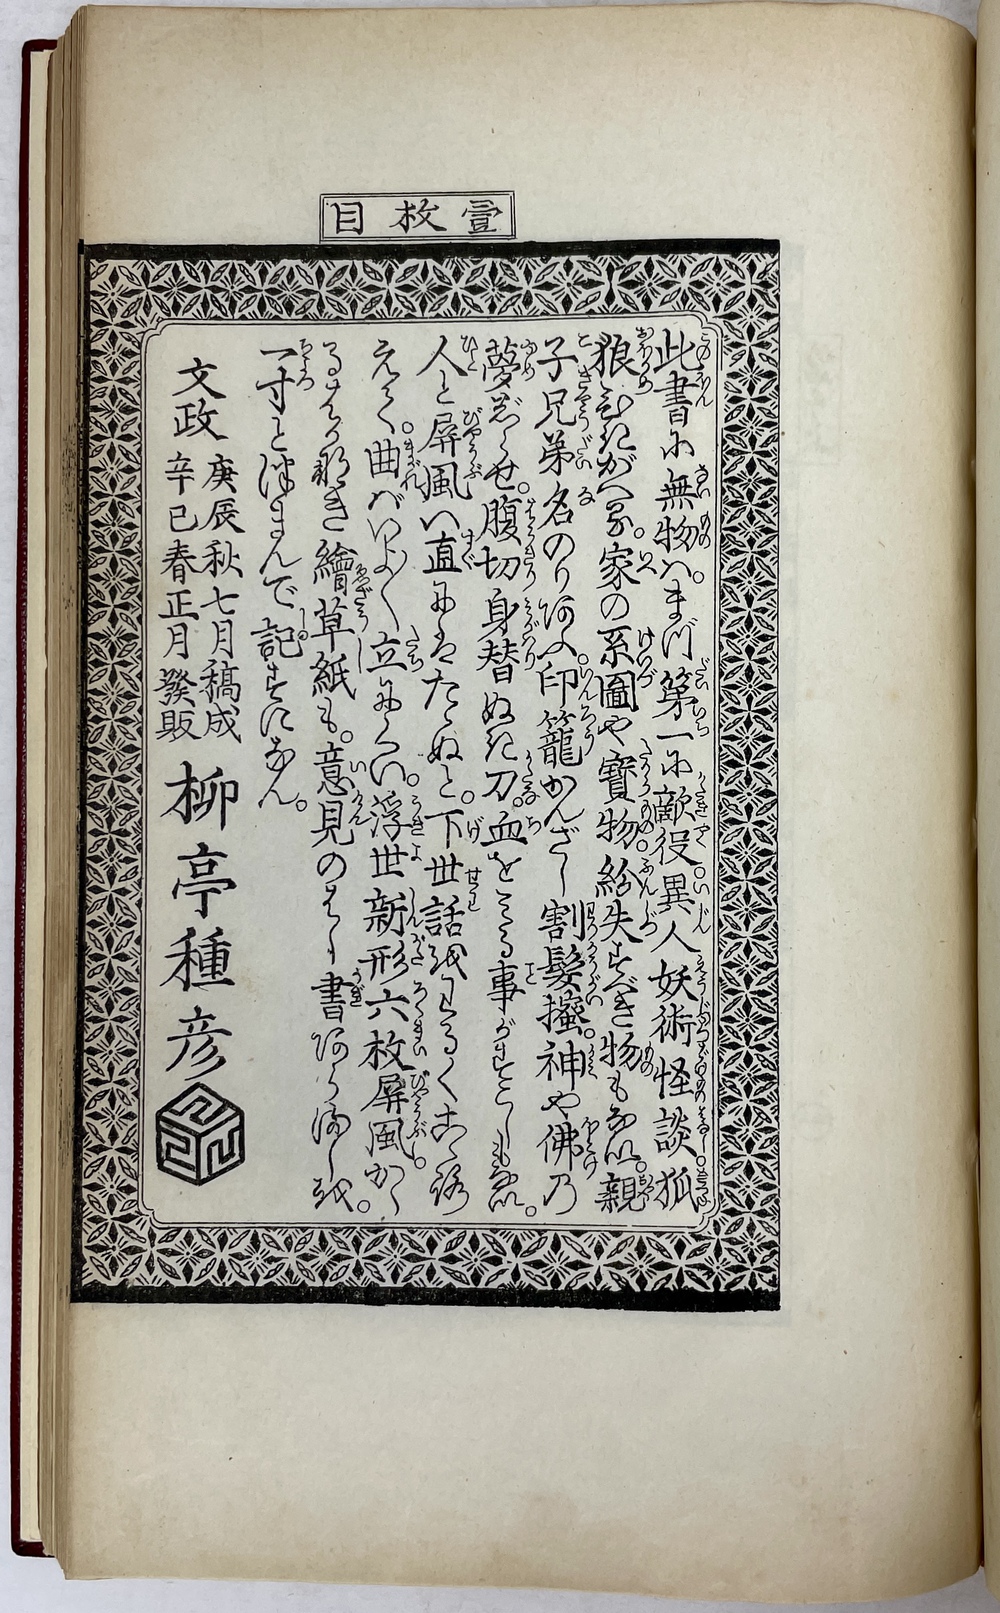 壹枚目
此書に無物ハ。まづ第一に敵役。異人妖術怪談。狐
狼ひきがへる。家の系圖や寶物。紛失すべき物もなし。親
子兄弟名のりあふ。印籠かんざし割髪搔。神や佛乃
夢さゞせ。腹切身替ぬけ刀。血を見る事がすこしも無。
人と屏風ハ直にはたゝぬと。下世話にわるくこゝろ
えて。曲がれバよく立にくい。浮世新形六枚屏風。かゝ
るはかなき繪草紙も。意見のはし書ありましを。
一寸とつまんで記すになん。
文政 庚辰秋七月稿成
辛巳春正月發販
柳亭種彦